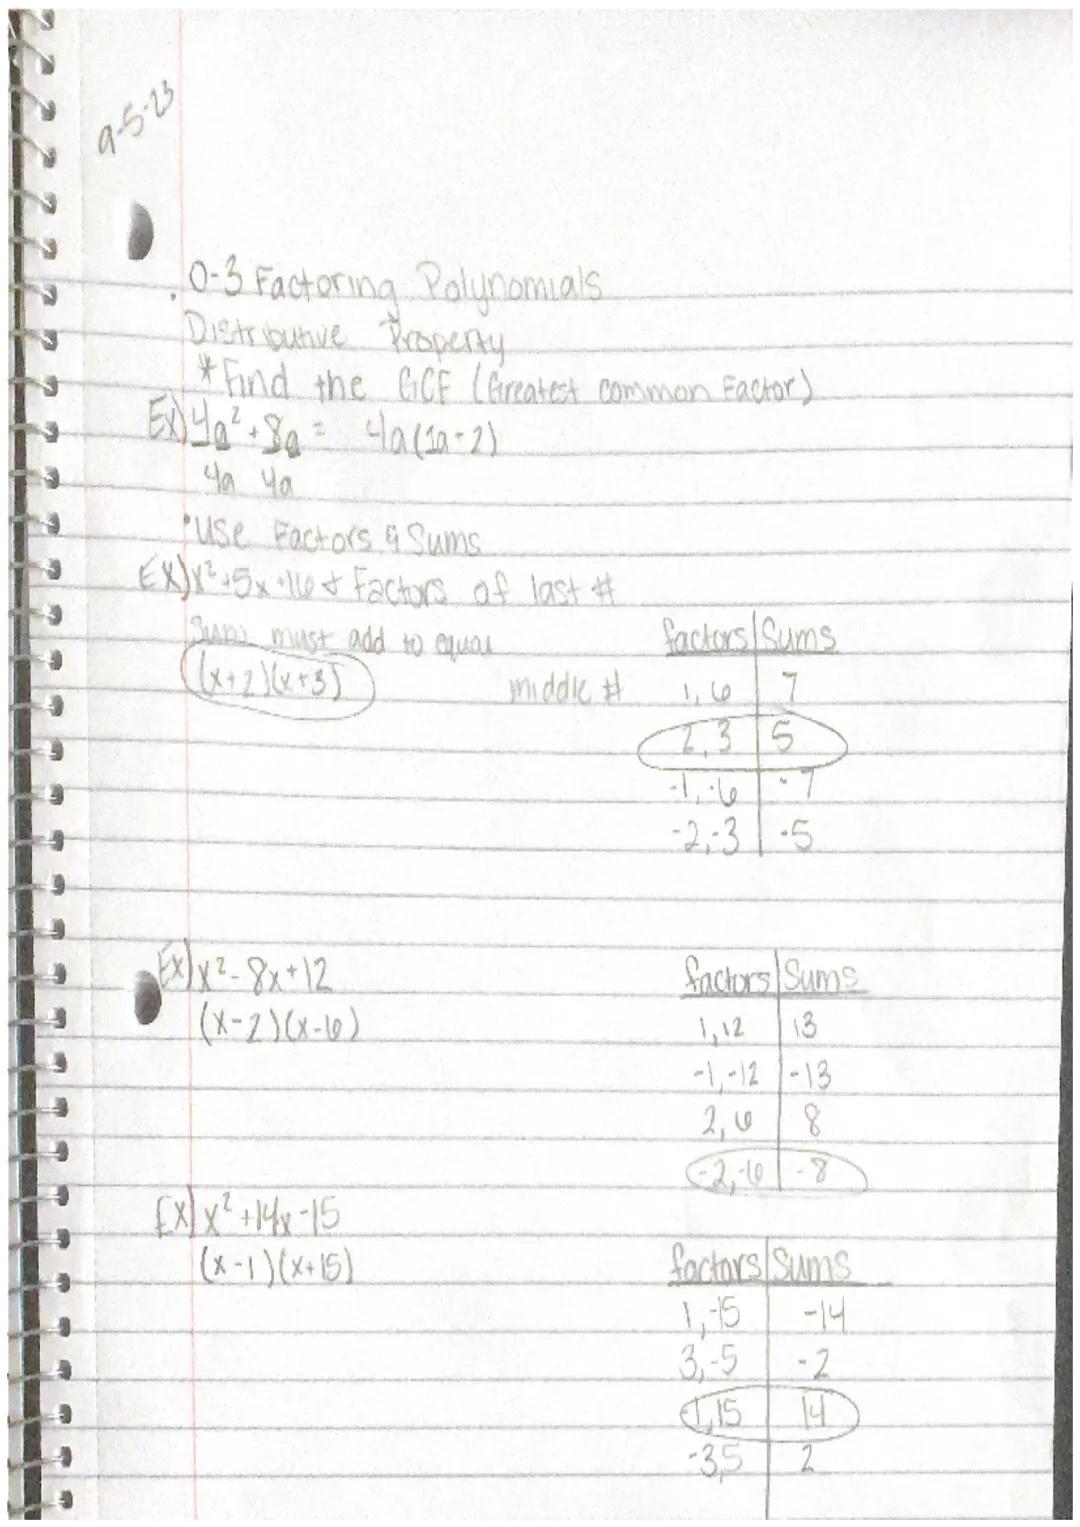 9-5-23
0-3 Factoring Polynomials
Distributive Property
*Find the GCF (Greatest common Factor)
Ex) 4a² + 8a = 4a(1a-2)
4a 4a
•Use Factors & Sums
Ex) x²+5x+16 & Factors of last #
Sums must add to equal
middle #
(x+2)(x+3)
factors | Sums
1, 6 | 7
2, 3 | 5
-1, -6 | -7
-2, -3 | -5
Ex) x²-8x+12
(x-2)(x-6)
factors | Sums
1, 12 | 13
-1, -12 | -13
2, 6 | 8
-2, -6 | -8
Ex) x²+14x-15
(x-1)(x+15)
factors | Sums
1, -15 | -14
3, -5 | -2
-1, 15 | 14
-3, 5 | 2